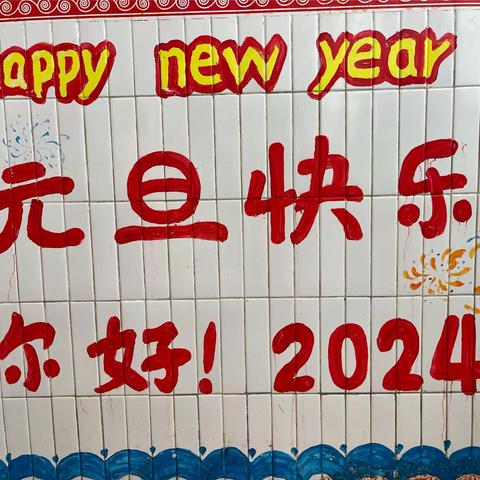 appy new year
元旦快乐
你好! 2024